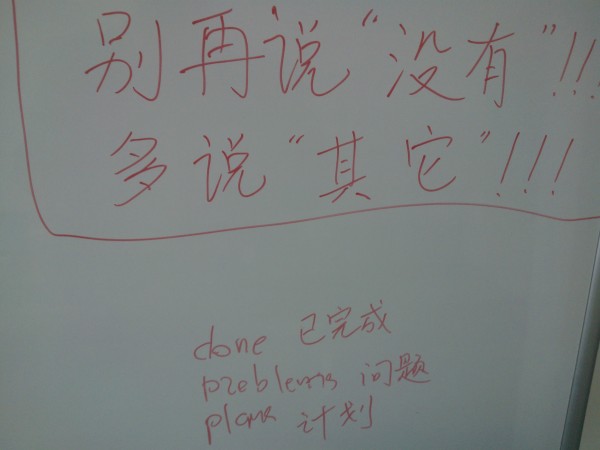 别再说“没有”!!!
多说“其它”!!!
done 已完成
problems 问题
plans 计划